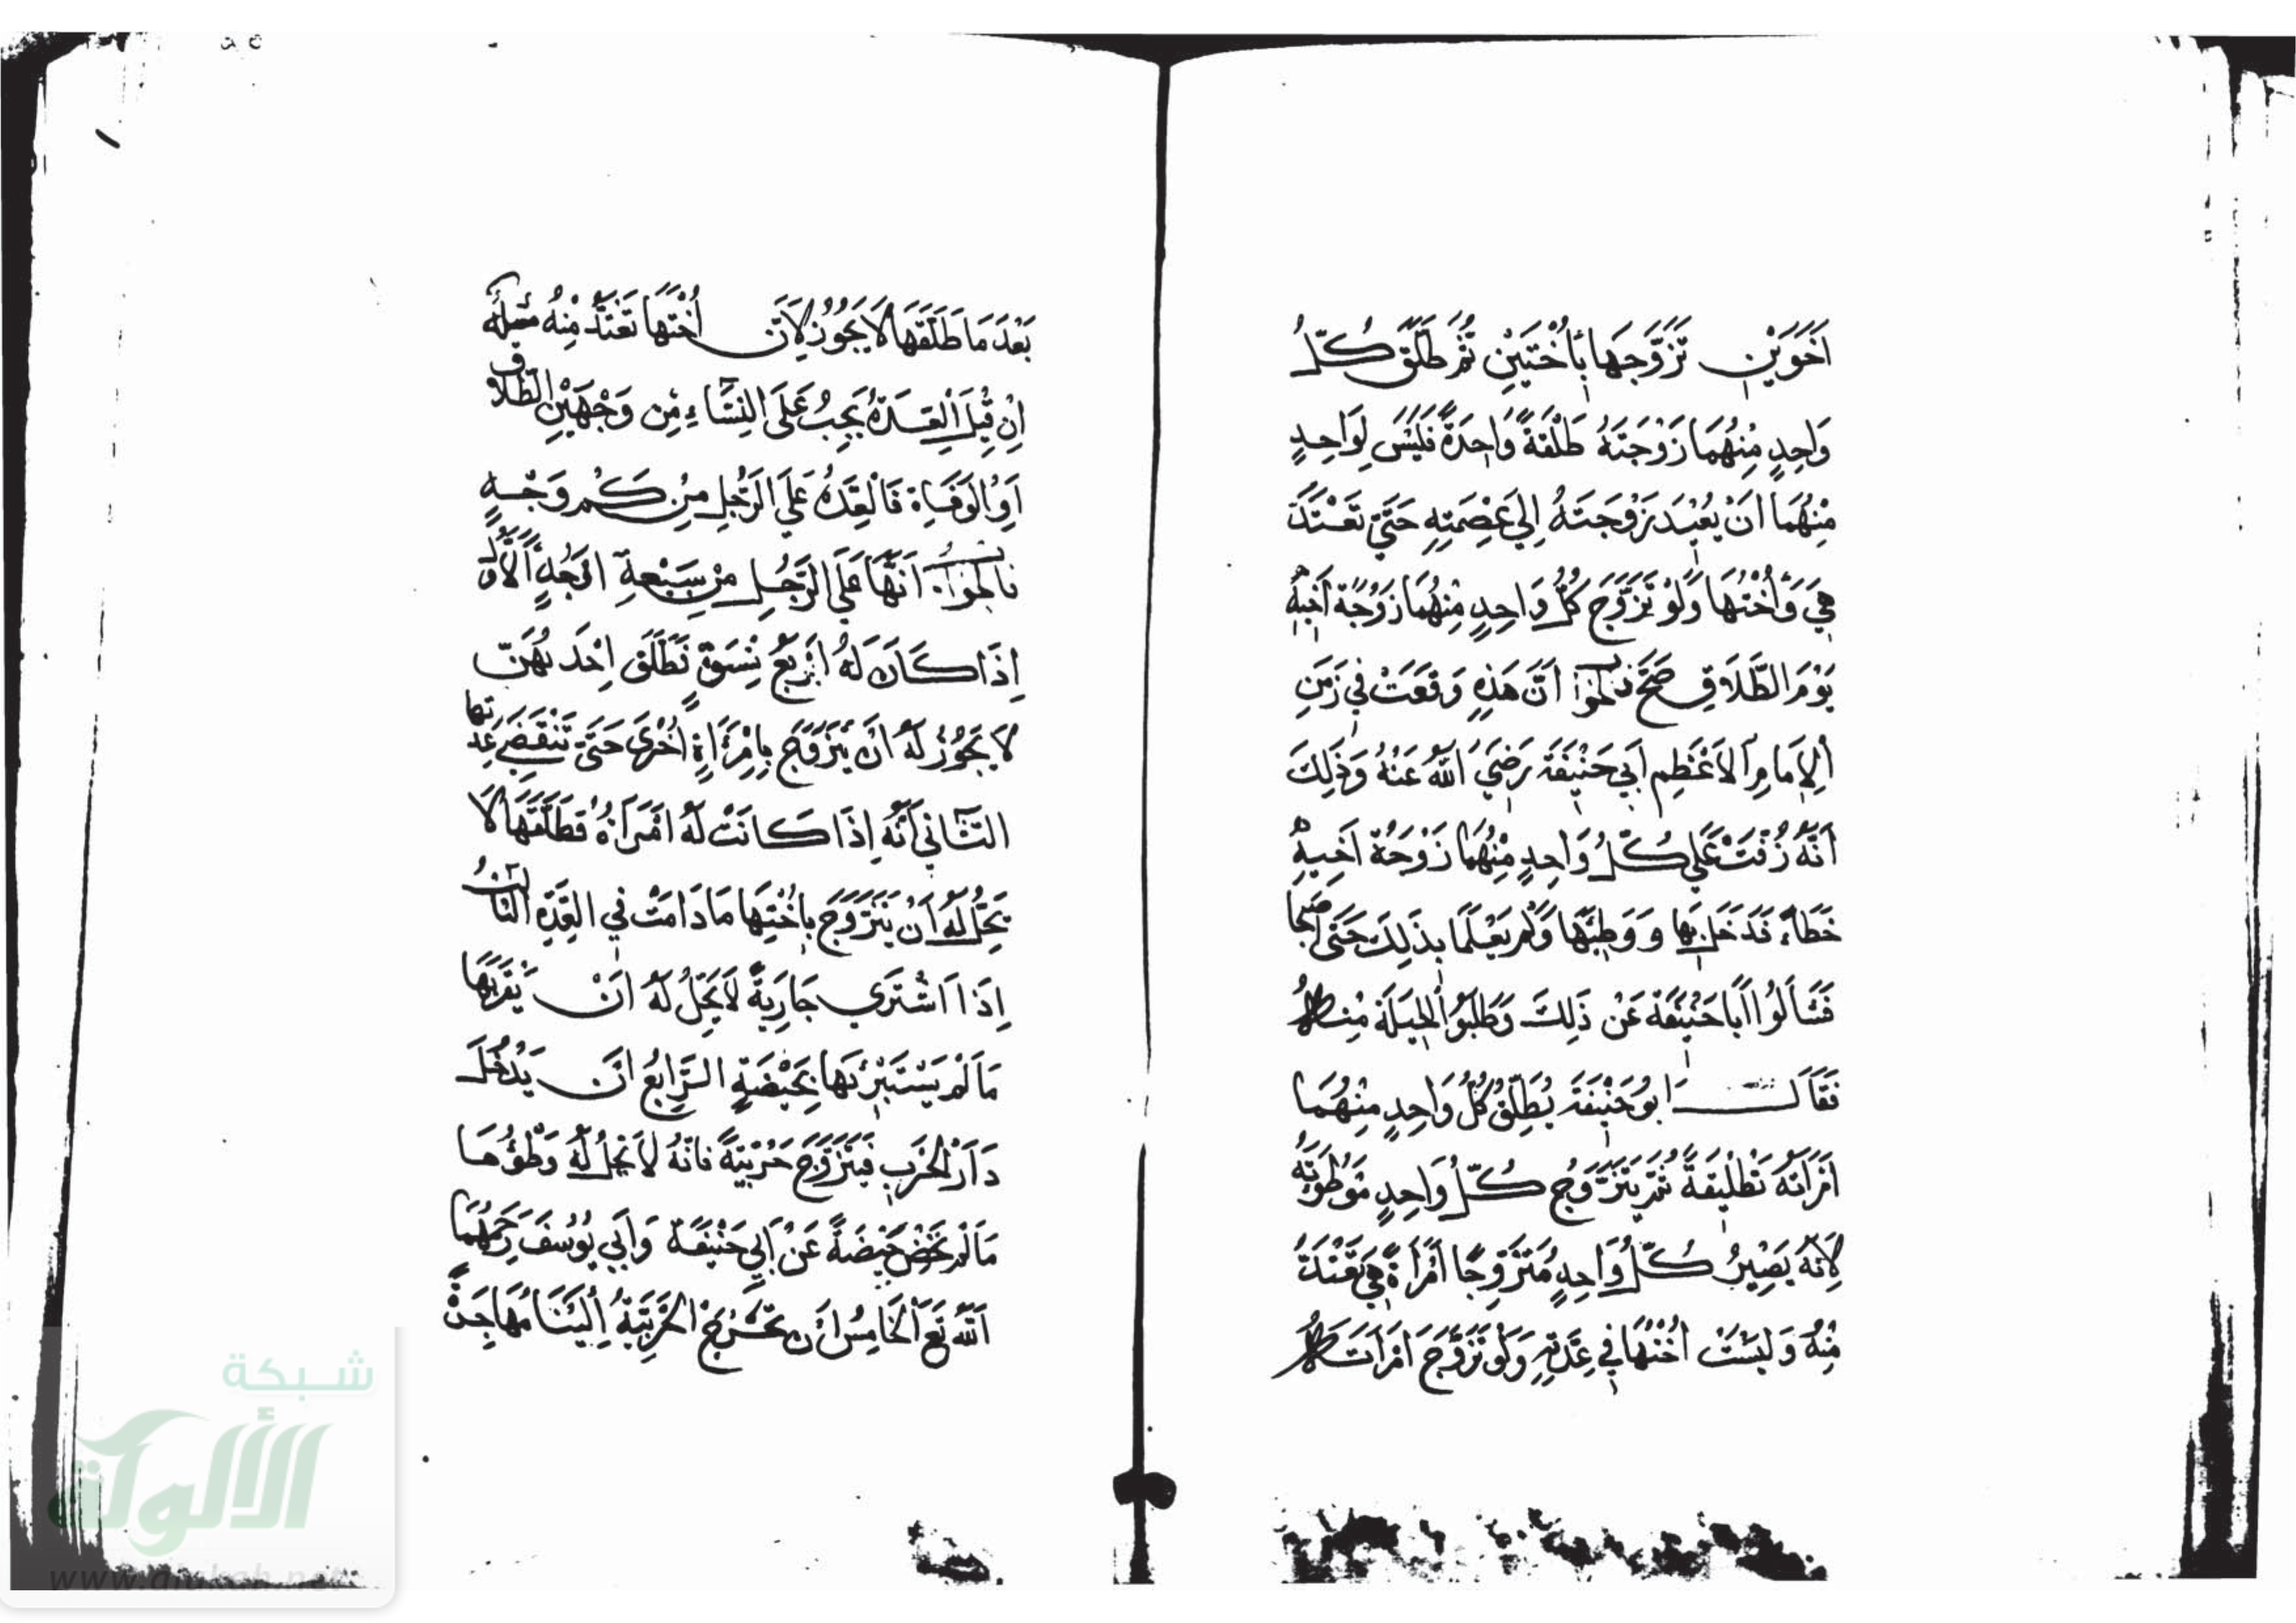 اَخَوَيْنِ تَزَوَّجَهَا بِأُخْتَيْنِ ثُمَّ طَلَّقَ كُلّ
وَاحِدٍ مِنْهُمَا زَوْجَتَهُ طَلْقَةً وَاحِدَةً فَلَيْسَ لِوَاحِدٍ
مِنْهُمَا اَنْ يُعْيِدَ زَوْجَتَهُ اِلَي عِصْمَتِهِ حَتَّي تَعْتَدَّ
هِيَ وَأُخْتُهَا وَلَوْ تَزَوَّجَ كُلُّ وَاحِدٍ مِنْهُمَا زَوْجَةَ اَخِيهِ
يَوْمَ الطَّلَاقِ صَحَّ فالجواب اَنَّ هَذِهِ وَقَعَتْ فِي زَمَنِ
اْلاِمَامِ اْلاَعْظَمِ اَبِي حَنْيِفَةَ رَضِيَ اللهُ عَنْهُ وَذَلِكَ
اَنَّهُ زُفَّتْ عَلَي كُلِّ وَاحِدٍ مِنْهُمَا زَوْجَةُ اَخِيهِ
خَطَاءً فَدَخَلَ بِهَا وَوَطِئَهَا وَلَمْ يَعْلَمَا بِذَلِكَ حَتَّى اصبحا
فَسَأَلُوْا اَبَا حَنْيِفَةَ عَنْ ذَلِكَ وَطَلَبُوْا الْحِيلَةَ مِنْهُ
فَقَالَ اَبُو حَنْيِفَةَ يُطَلِّقُ كُلُّ وَاحِدٍ مِنْهُمَا
اَمْرَاَتَهُ تَطْلِيقَةً ثُمَّ يَتَزَوَّجُ كُلُّ وَاحِدٍ مَوْطُوَتَهُ
لِاَنَّهُ يَصِيْرُ كُلُّ وَاحِدٍ مُتَزَوِّجًا اَمْرَاَةً هِيَ تَعْتَدُّ
مِنْهُ وَلَيْسَتْ اُخْتُهَا فِي عِدَّتِهِ وَلَوْ تَزَوَّجَ امْرَاَتَهُ
بَعْدَ مَا طَلَّقَهَا لَا يَجُوْزُ لِاَنَّ اُخْتَهَا تَعْتَدُّ مِنْهُ مسئلة
اِنْ قِيْلَ اَلْعِدَّةُ يَجِبُ عَلَى النِّسَاءِ مِنْ وَجْهَيْنِ الطَّلَاق
اَوِ الْوَفَاةِ فَالْعِدَّةُ عَلَي الرَّجُلِ مِنْ كَمْ وَجْهٍ
فالجواب اَنَّهَا عَلَي الرَّجُلِ مِنْ سَبْعَةِ اَوْجُهٍ اَلْاَوَّلُ
اِذَا كَانَ لَهُ اَرْبَعُ نِسْوَةٍ فَطَلَّقَ اِحْدَهُنَّ
لَا يَجُوْزُ لَهُ اَنْ يَتَزَوَّجَ بِامْرَاَةٍ اُخْرَى حَتَّى تَنْقَضِيَ عِدتها
الثَّانِي اَنَّهُ اِذَا كَانَتْ لَهُ امْرَاَةٌ فَطَلَّقَهَا لَا
يَحِلُّ لَهُ اَنْ يَتَزَوَّجَ بِاُخْتِهَا مَا دَامَتْ فِي الْعِدَّةِ الثالث
اِذَا اشْتَرَي جَارِيَةً لَا يَحِلُّ لَهُ اَنْ يَقْرَبَهَا
مَا لَمْ يَسْتَبْرِئْهَا بِحَيْضَةٍ الرَّابِعُ اَنْ يَدْخُلَ
دَارَ الْحَرْبِ فَيَتَزَوَّجَ حَرْبِيَّةً فَاِنَّهُ لَا يَحِلُّ لَهُ وَطْؤُهَا
مَا لَمْ تَحِضْ حَيْضَةً عَنْ اَبِي حَنْيِفَةَ وَاَبِي يُوْسُفَ رَحِمَهُمَا
اللهُ تَعَ اَلْخَامِسُ اَنْ تَخْرُجَ الْحَرْبِيَّةُ اِلَيْنَا مُهَاجِرَةً
شبكة
الألوكة
www.alukah.net